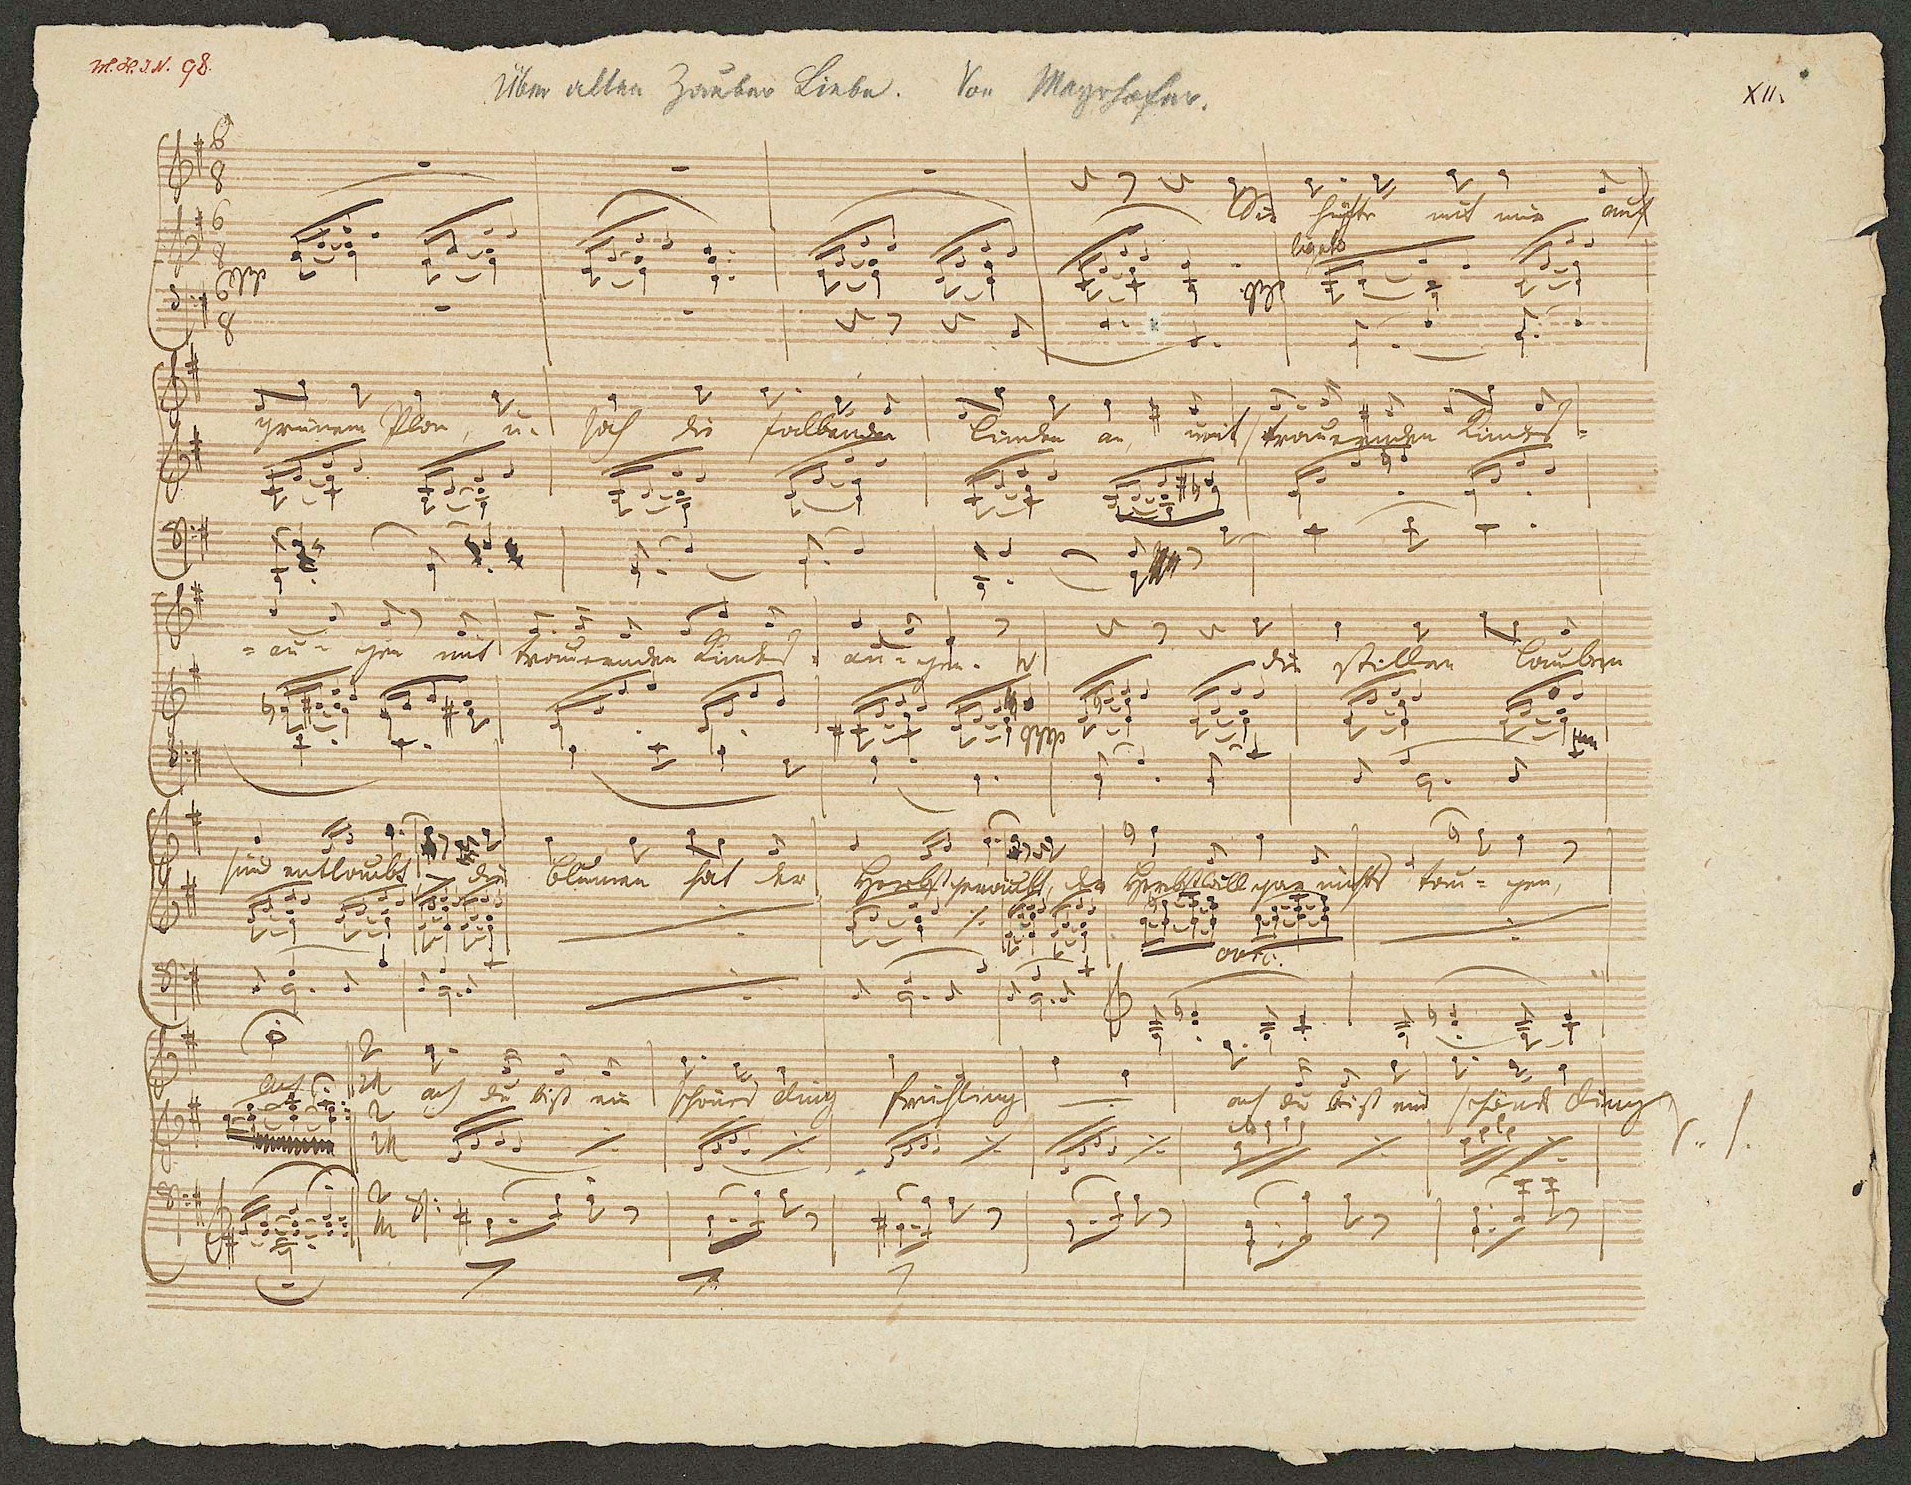 M.H.I.N. 98.
Über allen Zauber Liebe. Von Mayrhofer.
XII.
Sie hüpfte mit mir auf
legato
grünem Plan, u. sah die falbenden Linden an, mit trauernden Kindes=
=au=gen mit trauernden Kindes=au=gen. die stillen Lauben
sind entlaubt die Blumen hat der Herbst geraubt, der Herbst will gar nichts tau=gen,
ach
ach du bist ein schönes Ding Frühling ach du bist ein schönes Ding
V. S.